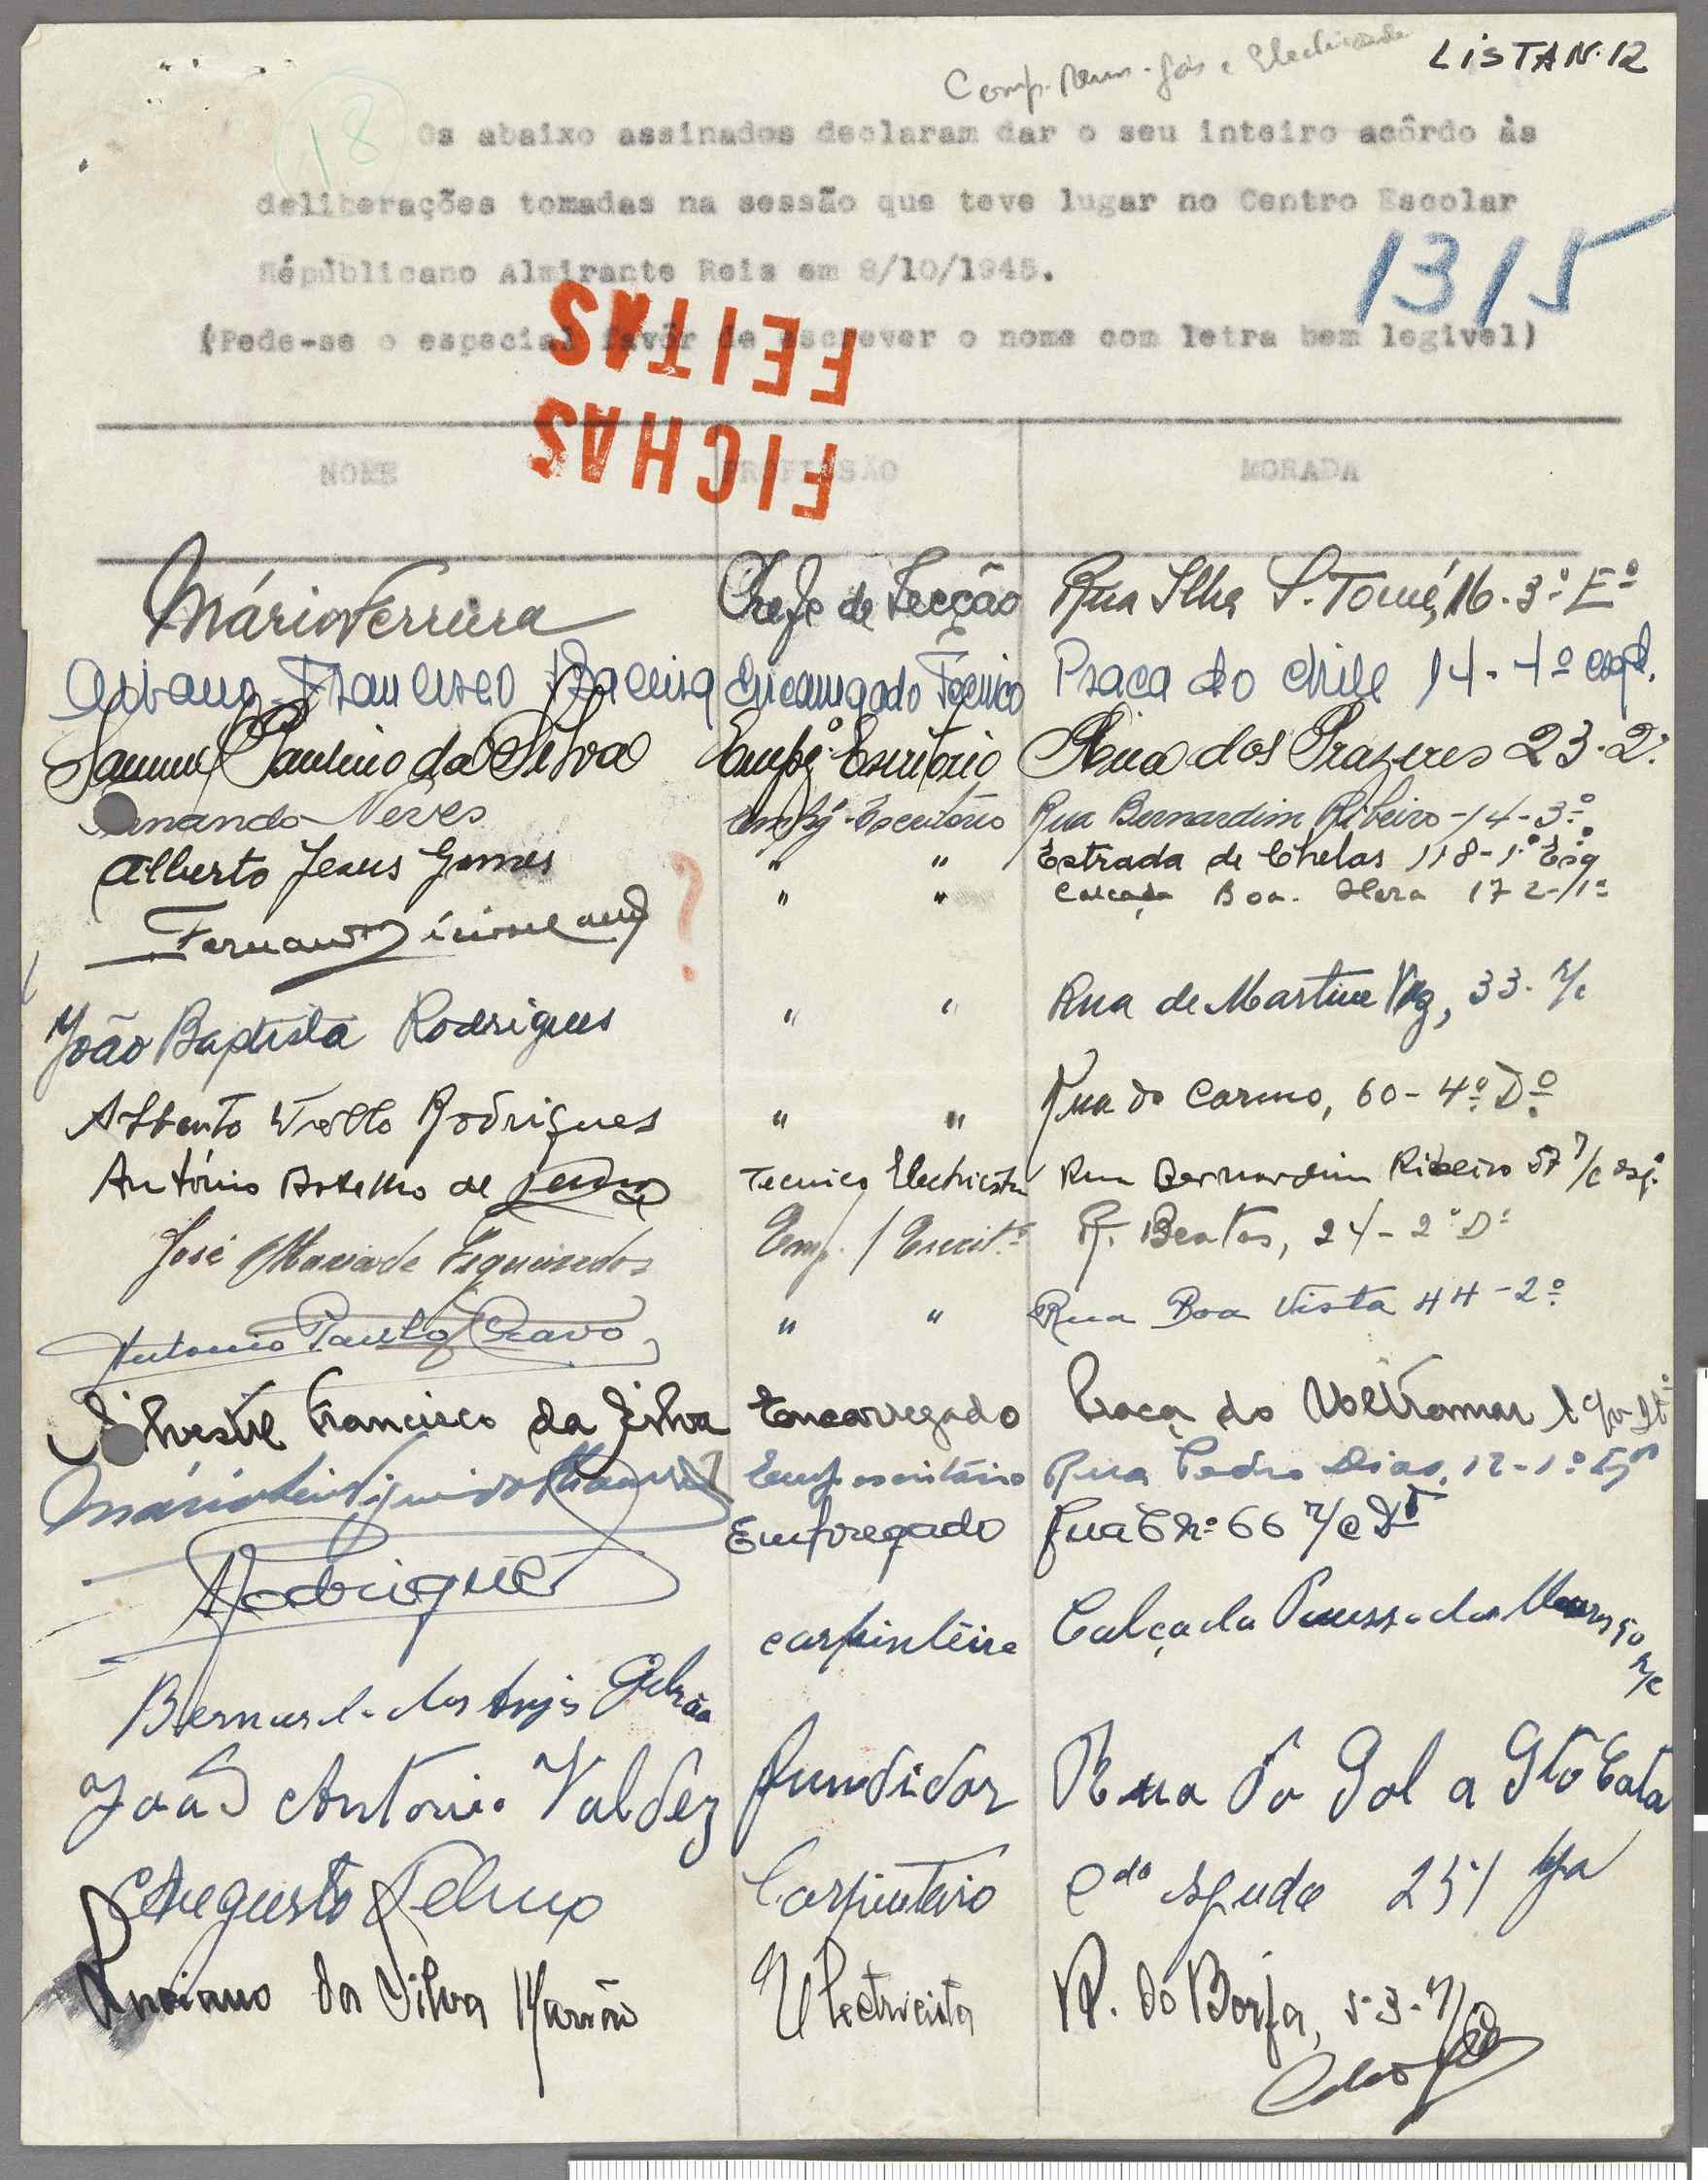 Comp. Gás e Electricidade
LISTA N. 12
18
Os abaixo assinados declaram dar o seu inteiro acôrdo às
deliberações tomadas na sessão que teve lugar no Centro Escolar
Républicano Almirante Reis em 8/10/1945.
1315
(Pede-se o especial favôr de escrever o nome com letra bem legivel)
FICHAS
FEITAS
NOME PROFISSÃO MORADA
Mário Ferreira Chefe de Secção Rua Ilha S. Tomé, 16-3º Eº
Francisco Encarregado Técnico Praça do Chile 14-4º esqº.
Paulino da Silva Empº Escritório Rua dos Prazeres 23-2º
Neves Empº Escritório Rua Bernardim Ribeiro-14-3º
Alberto Jesus Gomes " " Estrada de Chelas 118-1º Esq
" " Calçada Boa-Hora 172-1º
?
João Baptista Rodrigues " " Rua de Martim Vaz, 33-r/c
Alberto Rodrigues " " Rua do Carmo, 60-4º Dº
António Botelho de Tecnico Electricista Rua Bernardim Ribeiro 57 r/c esqº
José Maria de Figueiredo Emp. / Escritº R. Beatas, 24-2º Dº
Antonio Paulo Cravo " " Rua Boa Vista 44-2º
Silvestre Francisco da Silva Encarregado Praça do Ultramar
Mário Emp. escritório Rua Pedro Dias, 12-1º
Rodrigues Empregado Rua 6 nº 66 r/c Dt
Bernardo dos Anjos carpinteiro Calçada r/c
João Antonio Valdez fundidor Rua do Sol a Stª Cata
Augusto Telmo Carpinteiro 251
Luciano da Silva Marrão Electricista R. do Borja, 5-3-r/c